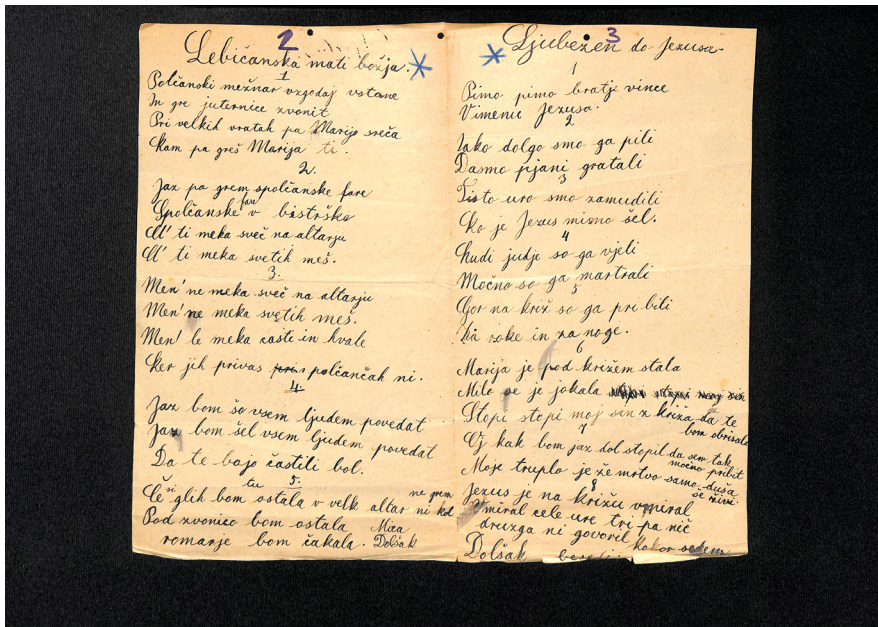 2
Lebičanska mati božja.
1
Polčanski mežnar vzgodaj vstane
In gre juternice zvonit
Pri velkih vratah pa Marijo sreča
Kam pa greš Marija ti.
2.
Jaz pa grem spolčanske fare
Spolčanske fare v bistrško
Al' ti meka sveč na altarju
Al' ti meka svetih meš.
3.
Men' ne meka sveč na altarju
Men' ne meka svetih meš.
Men' le meka časti in hvale
Ker jih privas polčančah ni.
4.
Jaz bom šo vsem ljudem povedat
Jaz bom šel vsem ljudem povedat
Da te bojo častili bol.
5.
Če si glih bom tu ostala v velk altar ne grem
Pod zvonico bom ostala
romarje bom čakala.
Mica
Dolšak
3
Ljubezen do Jezusa.
1
Pimo pimo bratji vince
V imenu Jezusa.
2
Tako dolgo smo ga pili
Dasmo pjani gratali
3
Tisto uro smo zamudili
Ko je Jezus mimo šel.
4
Hudi judje so ga vjeli
Močno so ga martrali
5
Gor na križ so ga pribili
Za roke in za noge.
6
Marija je pod križem stala
Milo se je jokala
Stopi stopi moj sin z križa da te
bom obrisala
7
Oj kak bom jaz dol stopil da sem tak
močno pribit
Moje truplo je že mrtvo samo duša
še živi.
8
Jezus je na križu vmiral
Vmiral cele ure tri pa nič
druzga ni govoril kakor sedem
Dolšak